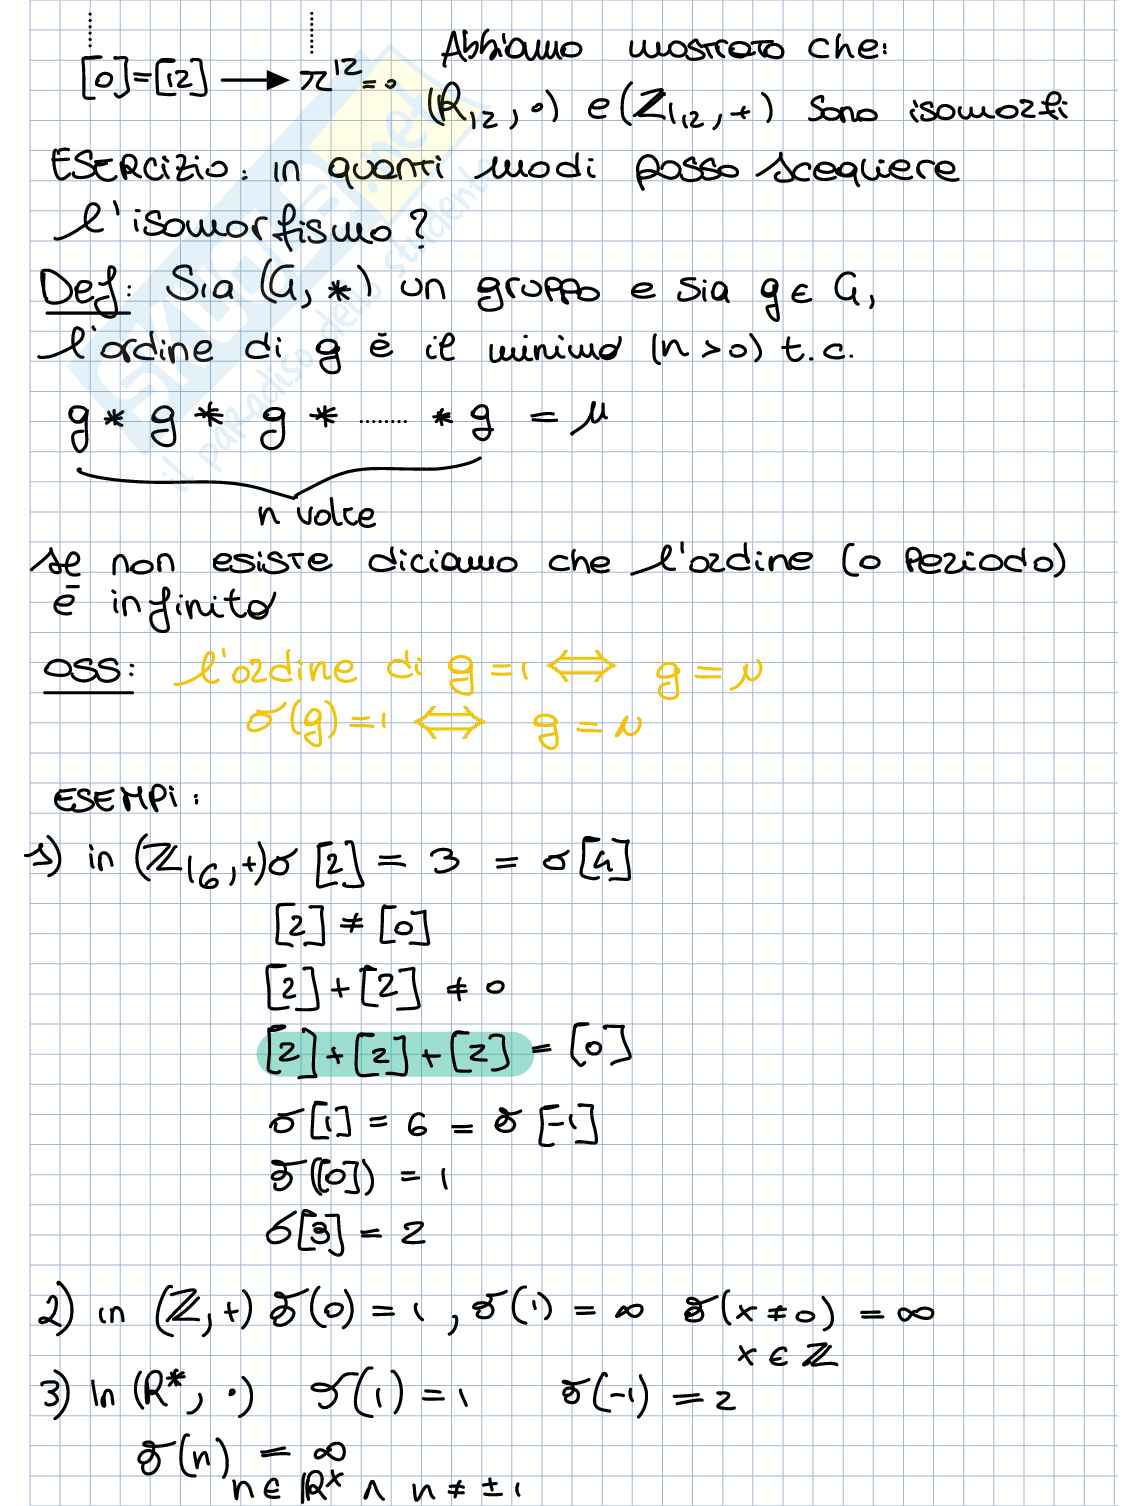 [0]=[12] → π¹² = 0 Abbiamo mostrato che:
(R₁₂, ·) e (Z₁₂, +) sono isomorfi
ESERCIZIO: in quanti modi posso scegliere
l'isomorfismo?
Def: Sia (G, *) un gruppo e sia g ∈ G,
l'ordine di g è il minimo (n > 0) t.c.
g * g * g * ........ * g = μ
n volte
se non esiste diciamo che l'ordine (o Periodo)
è infinito
OSS: l'ordine di g = 1 ⟺ g = μ
σ(g) = 1 ⟺ g = μ
ESEMPI:
1) in (Z|6, +) σ [2] = 3 = σ [4]
[2] ≠ [0]
[2] + [2] ≠ 0
[2] + [2] + [2] = [0]
σ [1] = 6 = σ [-1]
σ([0]) = 1
σ[3] = 2
2) in (Z, +) σ(0) = 1, σ(1) = ∞ σ(x ≠ 0) = ∞
x ∈ Z
3) In (R*, ·) σ(1) = 1 σ(-1) = 2
σ(n) = ∞
n ∈ R× ∧ n ≠ ± 1
SKUOLA.net
il paradiso dello studente